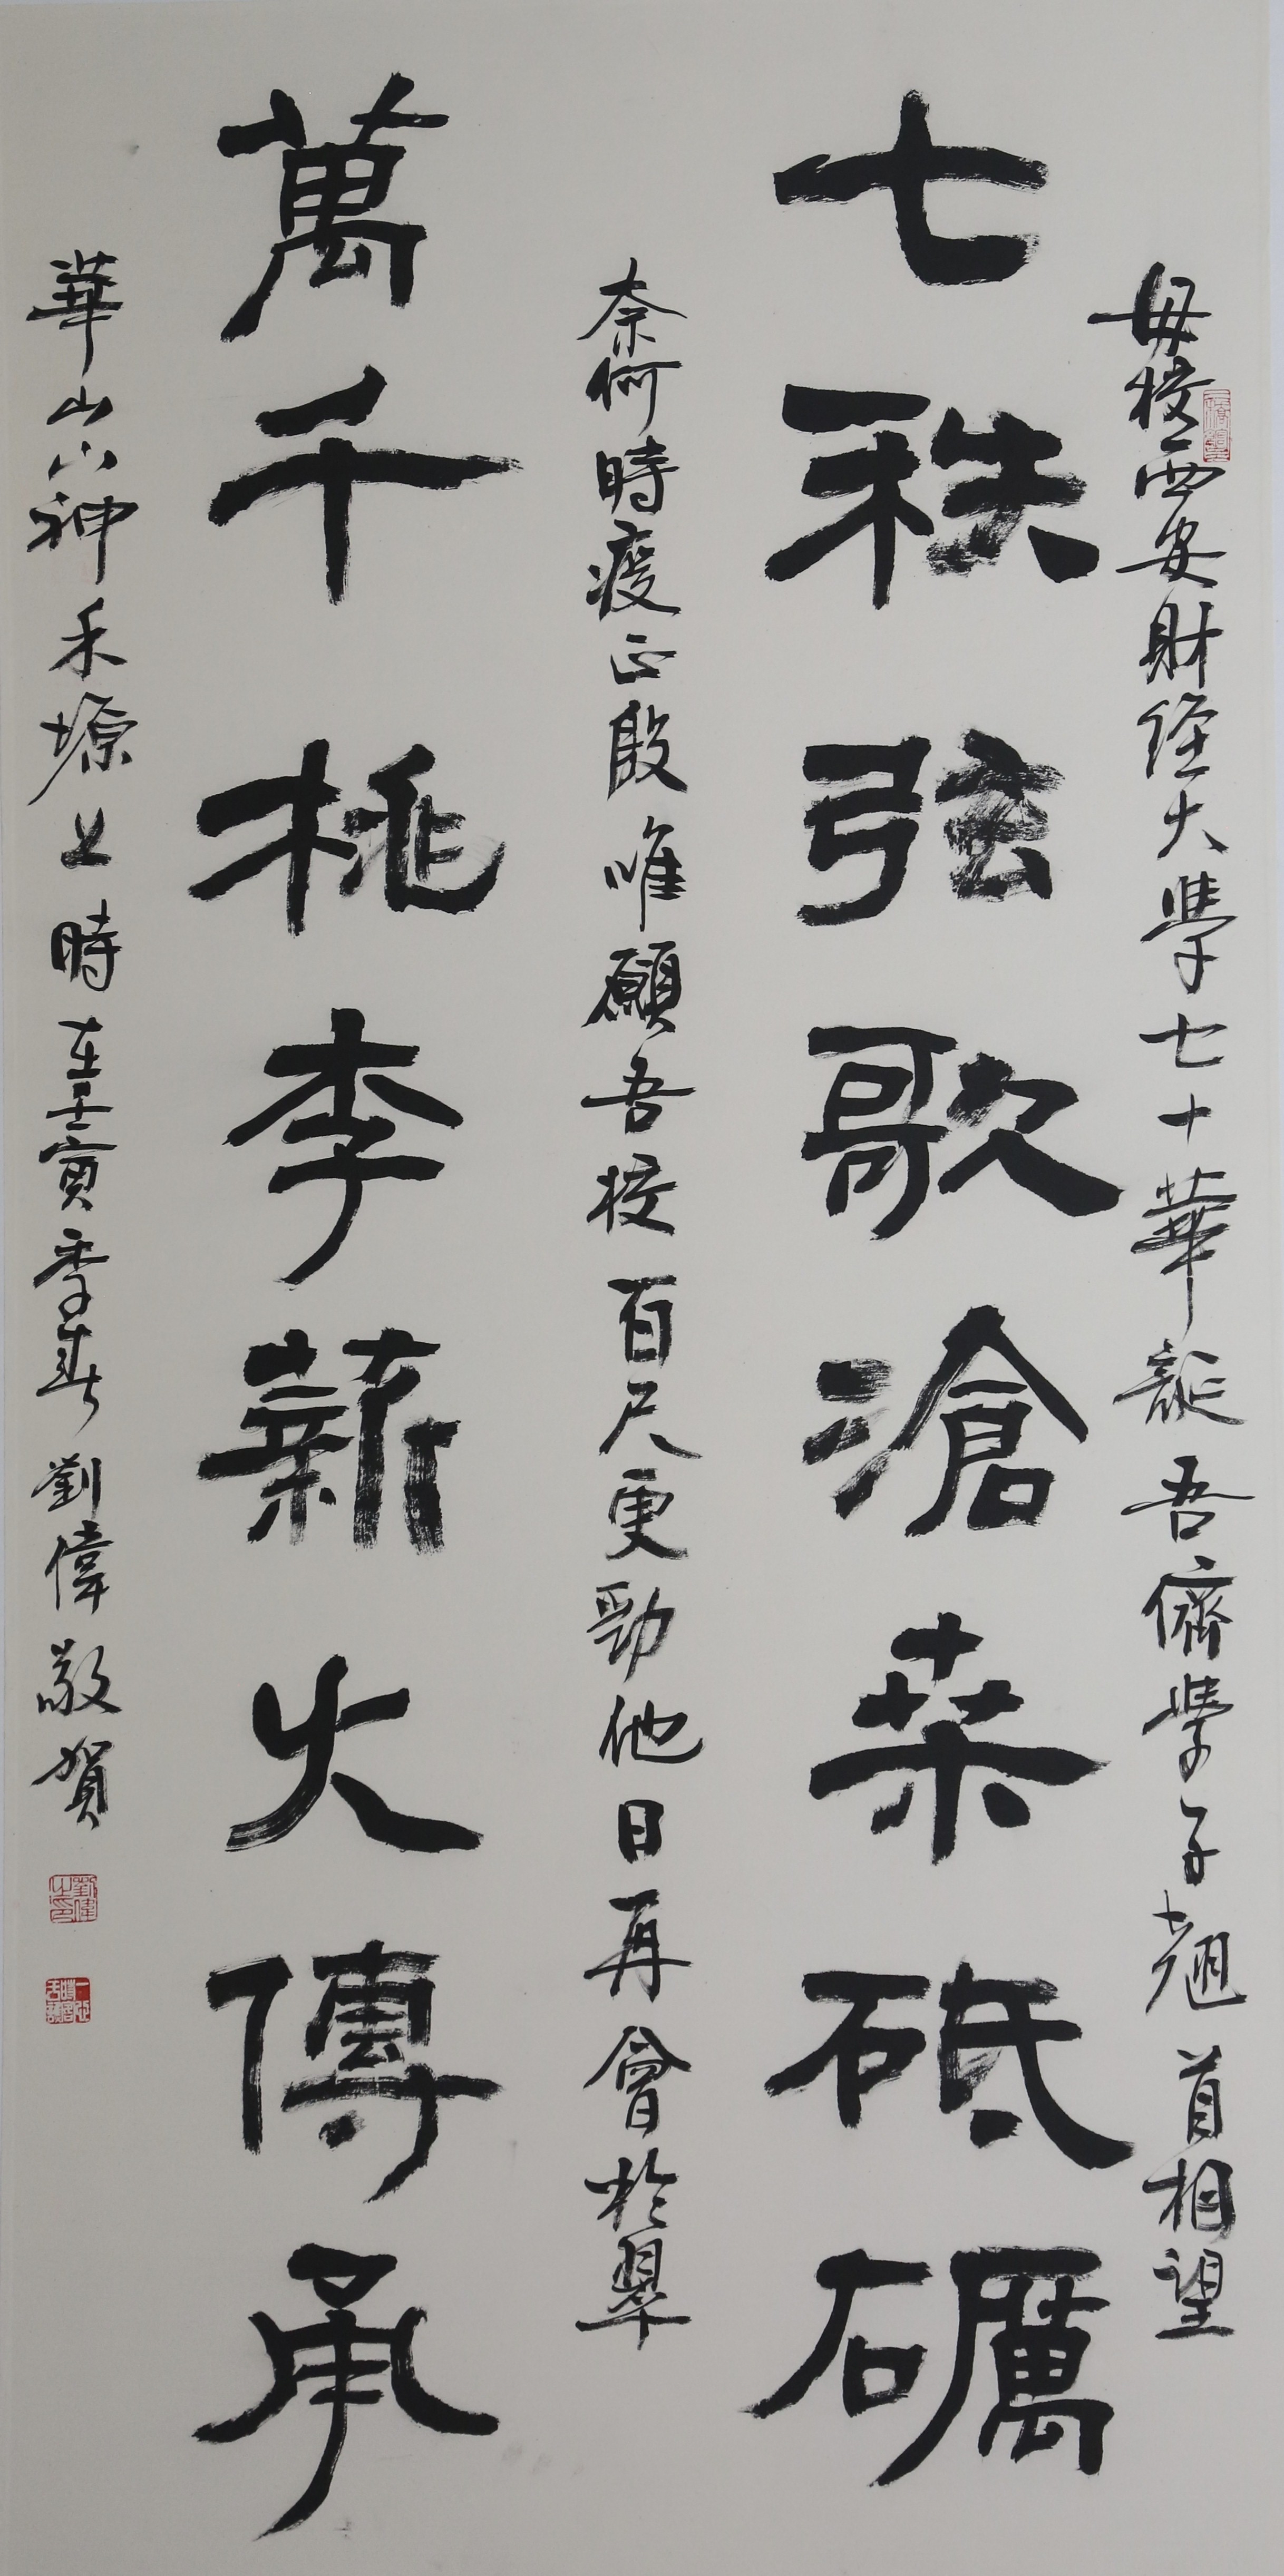 母校西安財經大學七十華誕吾儕學子翹首相望
七秩弦歌滄桑砥礪
奈何時疫正殷唯願吾校百尺更勁他日再會於翠
萬千桃李薪火傳承
華山下神禾塬上時在壬寅季春劉偉敬賀
劉偉之印